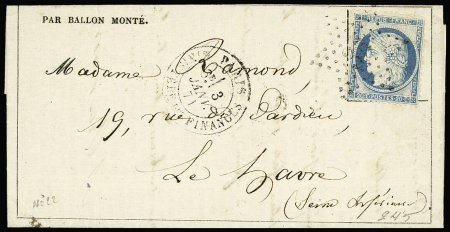 PAR BALLON MONTÉ.
REPUB. FRANC.
Madame Lamond,
PARIS
3
JANV.
FINANCES
19, rue Dardieu
Le Havre
(Seine Inférieure)
N° 22
245